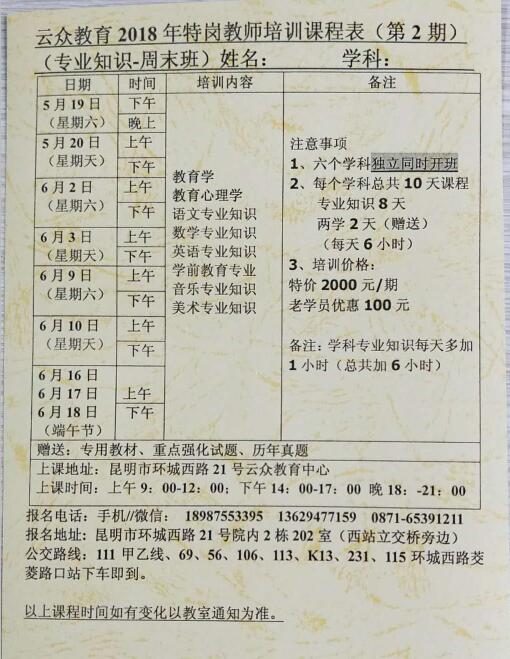 云众教育 2018 年特岗教师培训课程表（第 2 期）
（专业知识-周末班）姓名： 学科：
日期 时间 培训内容 备注
5 月 19 日 下午
（星期六） 晚上
5 月 20 日 上午
（星期天） 下午
6 月 2 日 上午
（星期六） 下午
6 月 3 日 上午
（星期天） 下午
6 月 9 日 上午
（星期六） 下午
6 月 10 日 上午
（星期天） 下午
6 月 16 日
6 月 17 日 上午
6 月 18 日 下午
（端午节）
教育学
教育心理学
语文专业知识
数学专业知识
英语专业知识
学前教育专业
音乐专业知识
美术专业知识
注意事项
1、六个学科独立同时开班
2、每个学科总共 10 天课程
专业知识 8 天
两学 2 天（赠送）
（每天 6 小时）
3、培训价格：
特价 2000 元/期
老学员优惠 100 元
备注：学科专业知识每天多加
1 小时（总共加 6 小时）
赠送：专用教材、重点强化试题、历年真题
上课地址：昆明市环城西路 21 号云众教育中心
上课时间：上午 9：00-12：00；下午 14：00-17：00 晚 18：-21：00
报名电话：手机//微信： 18987553395 13629477159 0871-65391211
报名地址：昆明市环城西路 21 号院内 2 栋 202 室（西站立交桥旁边）
公交路线：111 甲乙线、69、56、106、113、K13、231、115 环城西路茭
菱路口站下车即到。
以上课程时间如有变化以教室通知为准。